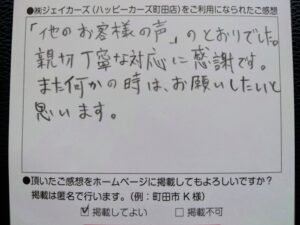 ●㈱ジェイカーズ〈ハッピーカーズ町田店〉をご利用になられたご感想
「他のお客様の声」のとおりでした。
親切丁寧な対応に感謝です。
また何かの時は、お願いしたいと
思います。
●頂いたご感想をホームページに掲載してもよろしいですか?
掲載は匿名で行います。(例:町田市K様)
☑掲載してよい □掲載不可